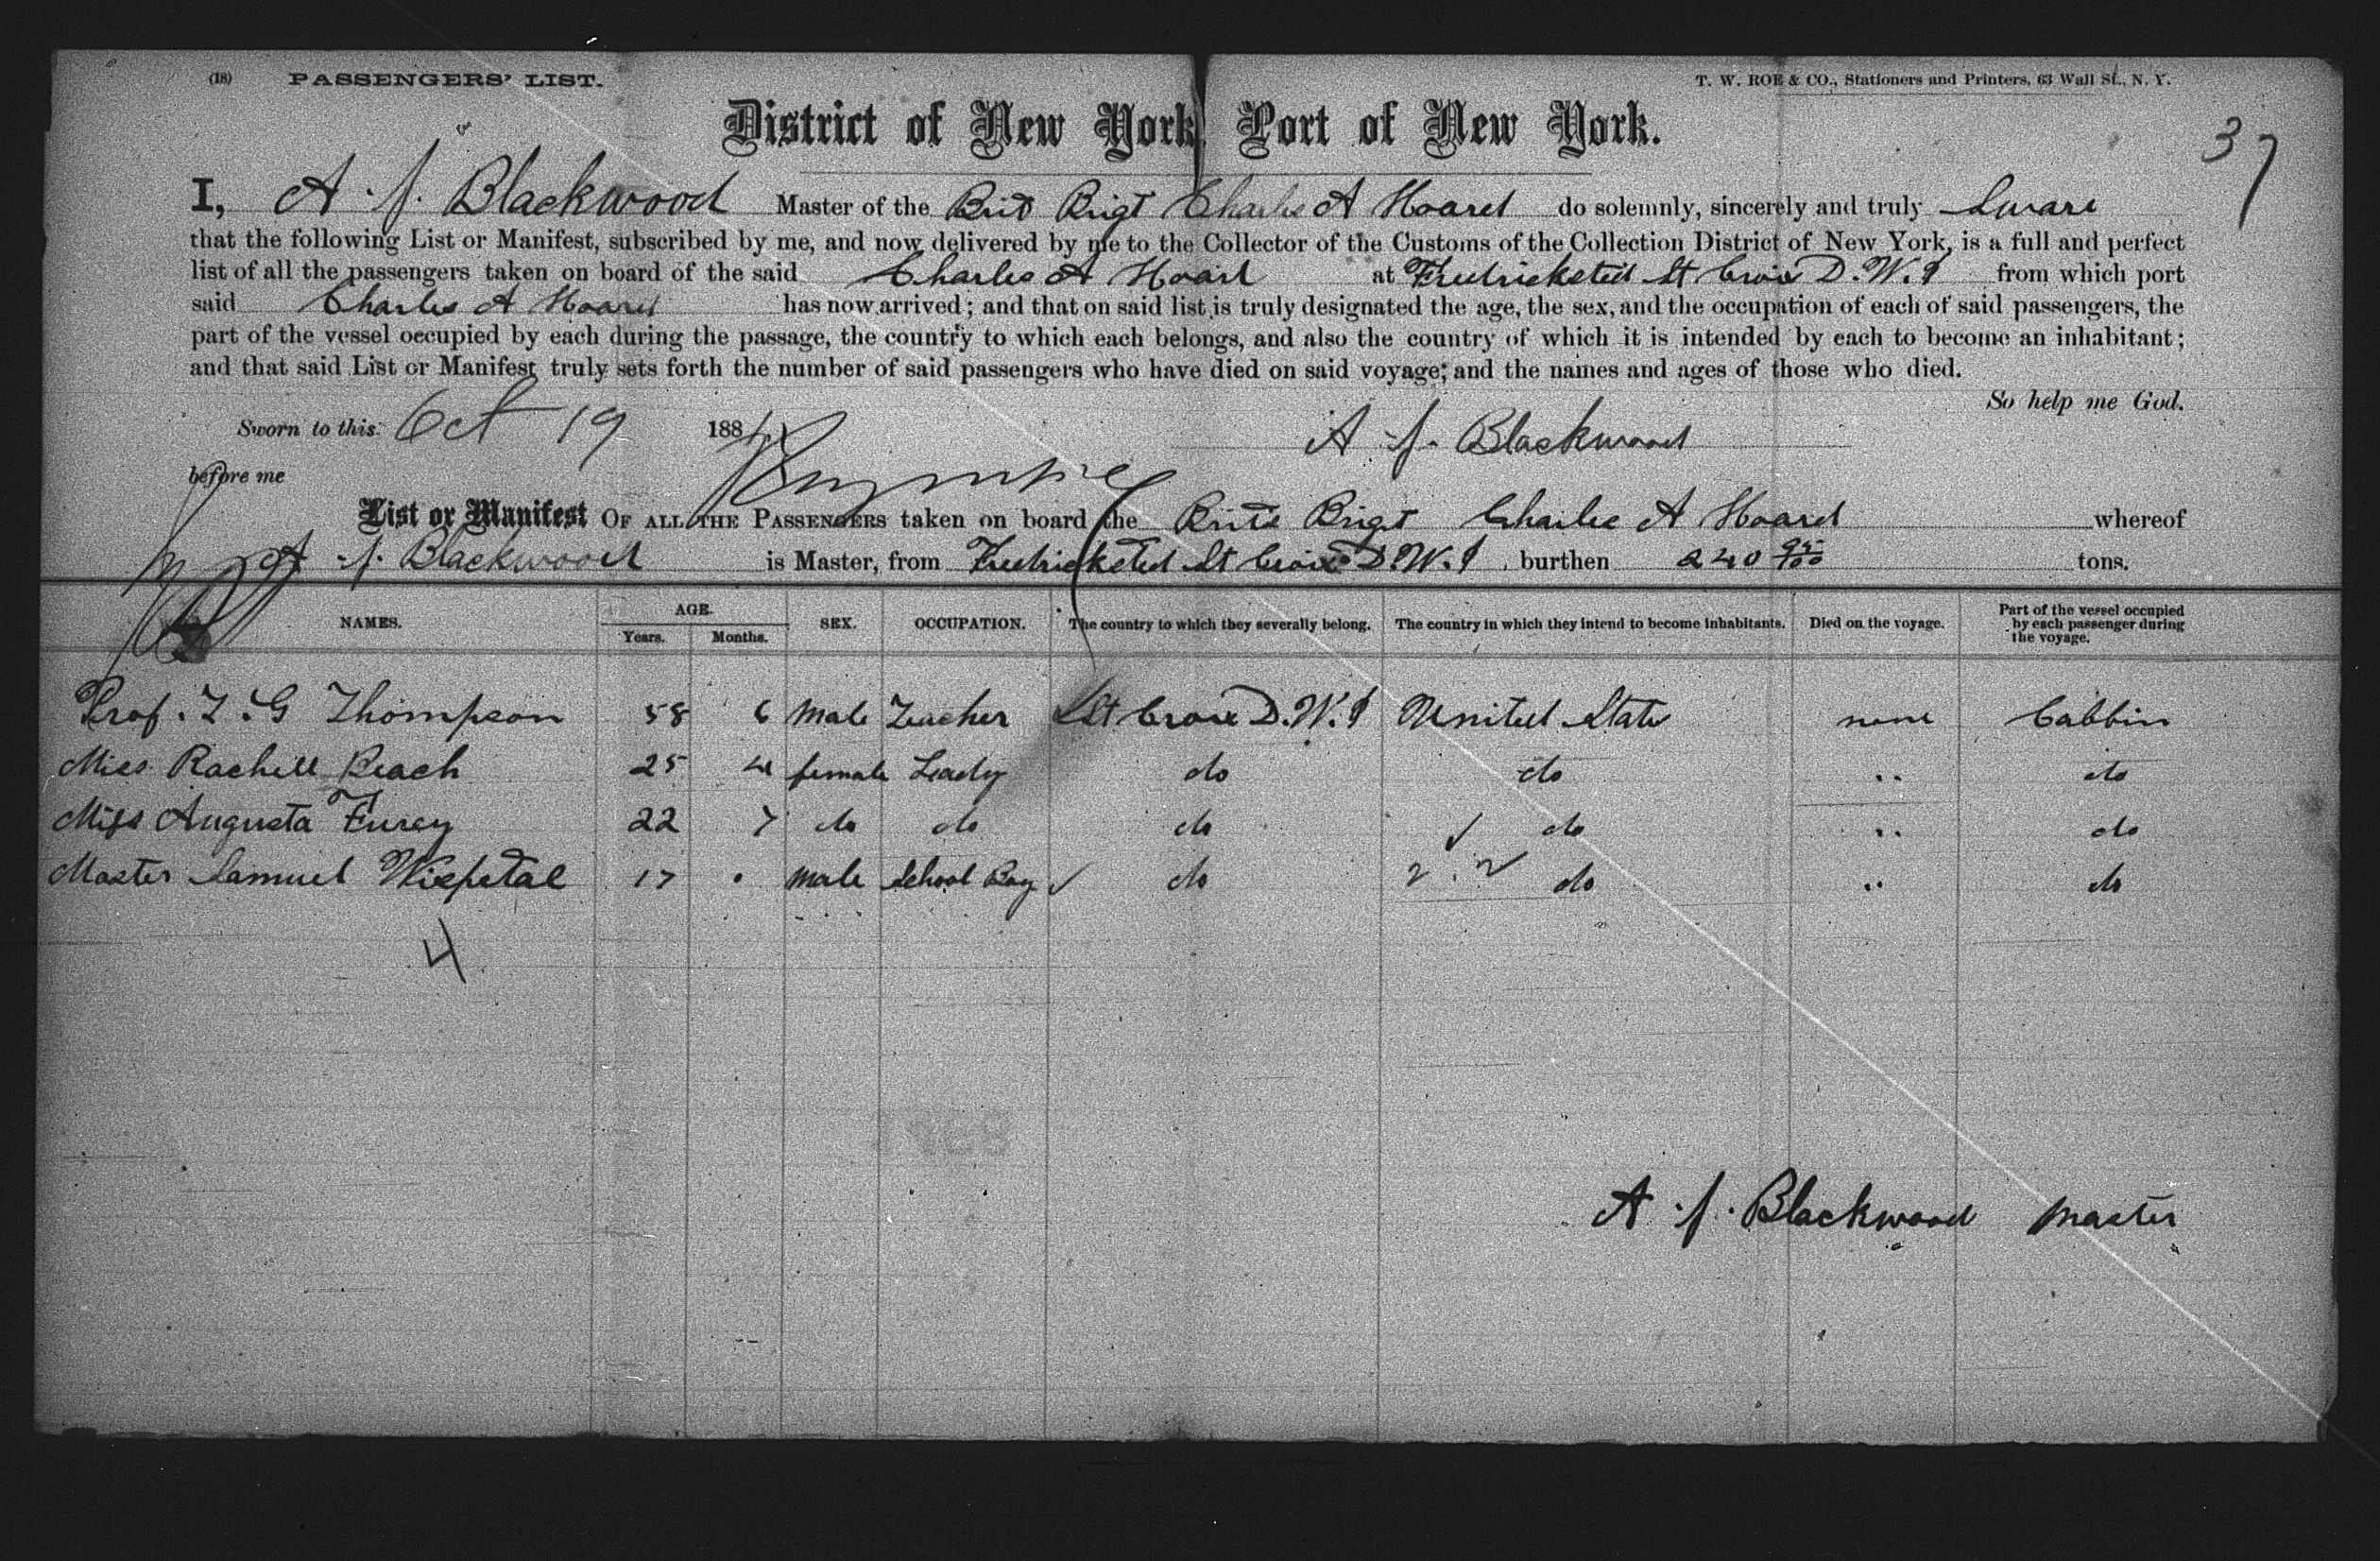 (18) PASSENGERS' LIST. T. W. ROE & CO., Stationers and Printers, 63 Wall St., N. Y.
District of New York Port of New York.
37
I, A. J. Blackwood Master of the Brit Brigt Charles A Hoard do solemnly, sincerely and truly Sware
that the following List or Manifest, subscribed by me, and now delivered by me to the Collector of the Customs of the Collection District of New York, is a full and perfect
list of all the passengers taken on board of the said Charles A Hoard at Fredricksted St Croix D.W.I from which port
said Charles A Hoard has now arrived; and that on said list is truly designated the age, the sex, and the occupation of each of said passengers, the
part of the vessel occupied by each during the passage, the country to which each belongs, and also the country of which it is intended by each to become an inhabitant;
and that said List or Manifest truly sets forth the number of said passengers who have died on said voyage; and the names and ages of those who died.
So help me God.
Sworn to this Oct 19 188 A. J. Blackwood
before me
List or Manifest OF ALL THE PASSENGERS taken on board the Brits Brigt Charles A Hoard whereof
A. J. Blackwood is Master, from Fredricksted St Croix D.W.I burthen 240 95/100 tons.
NAMES. AGE. Years. Months. SEX. OCCUPATION. The country to which they severally belong. The country in which they intend to become inhabitants. Died on the voyage. Part of the vessel occupied by each passenger during the voyage.
Prof. T. G Thompson 58 6 Male Teacher St Croix D.W.I United States none Cabbin
Miss Rachell Beach 25 4 female Leady do do " do
Miss Augusta Furey 22 7 do do do do " do
Master Samuel 17 Male School Boy do do " do
4
A. J. Blackwood Master